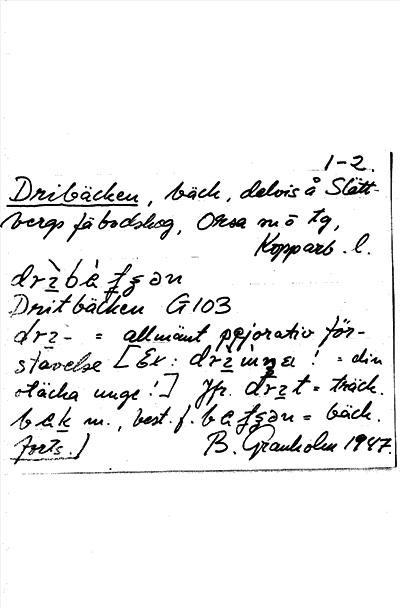 1-2.
Dribäcken, bäck, delvis å Slätt-
bergs fäbodskog, Orsa sn ö tg,
Kopparb. l.
Dritbäcken G 103
= allmänt pejorativ för-
stavelse [Ex: ! = din
otäcka unge!] Jfr. = träck.
m., best. f. = bäck.
forts.] B. Granholm 1947.